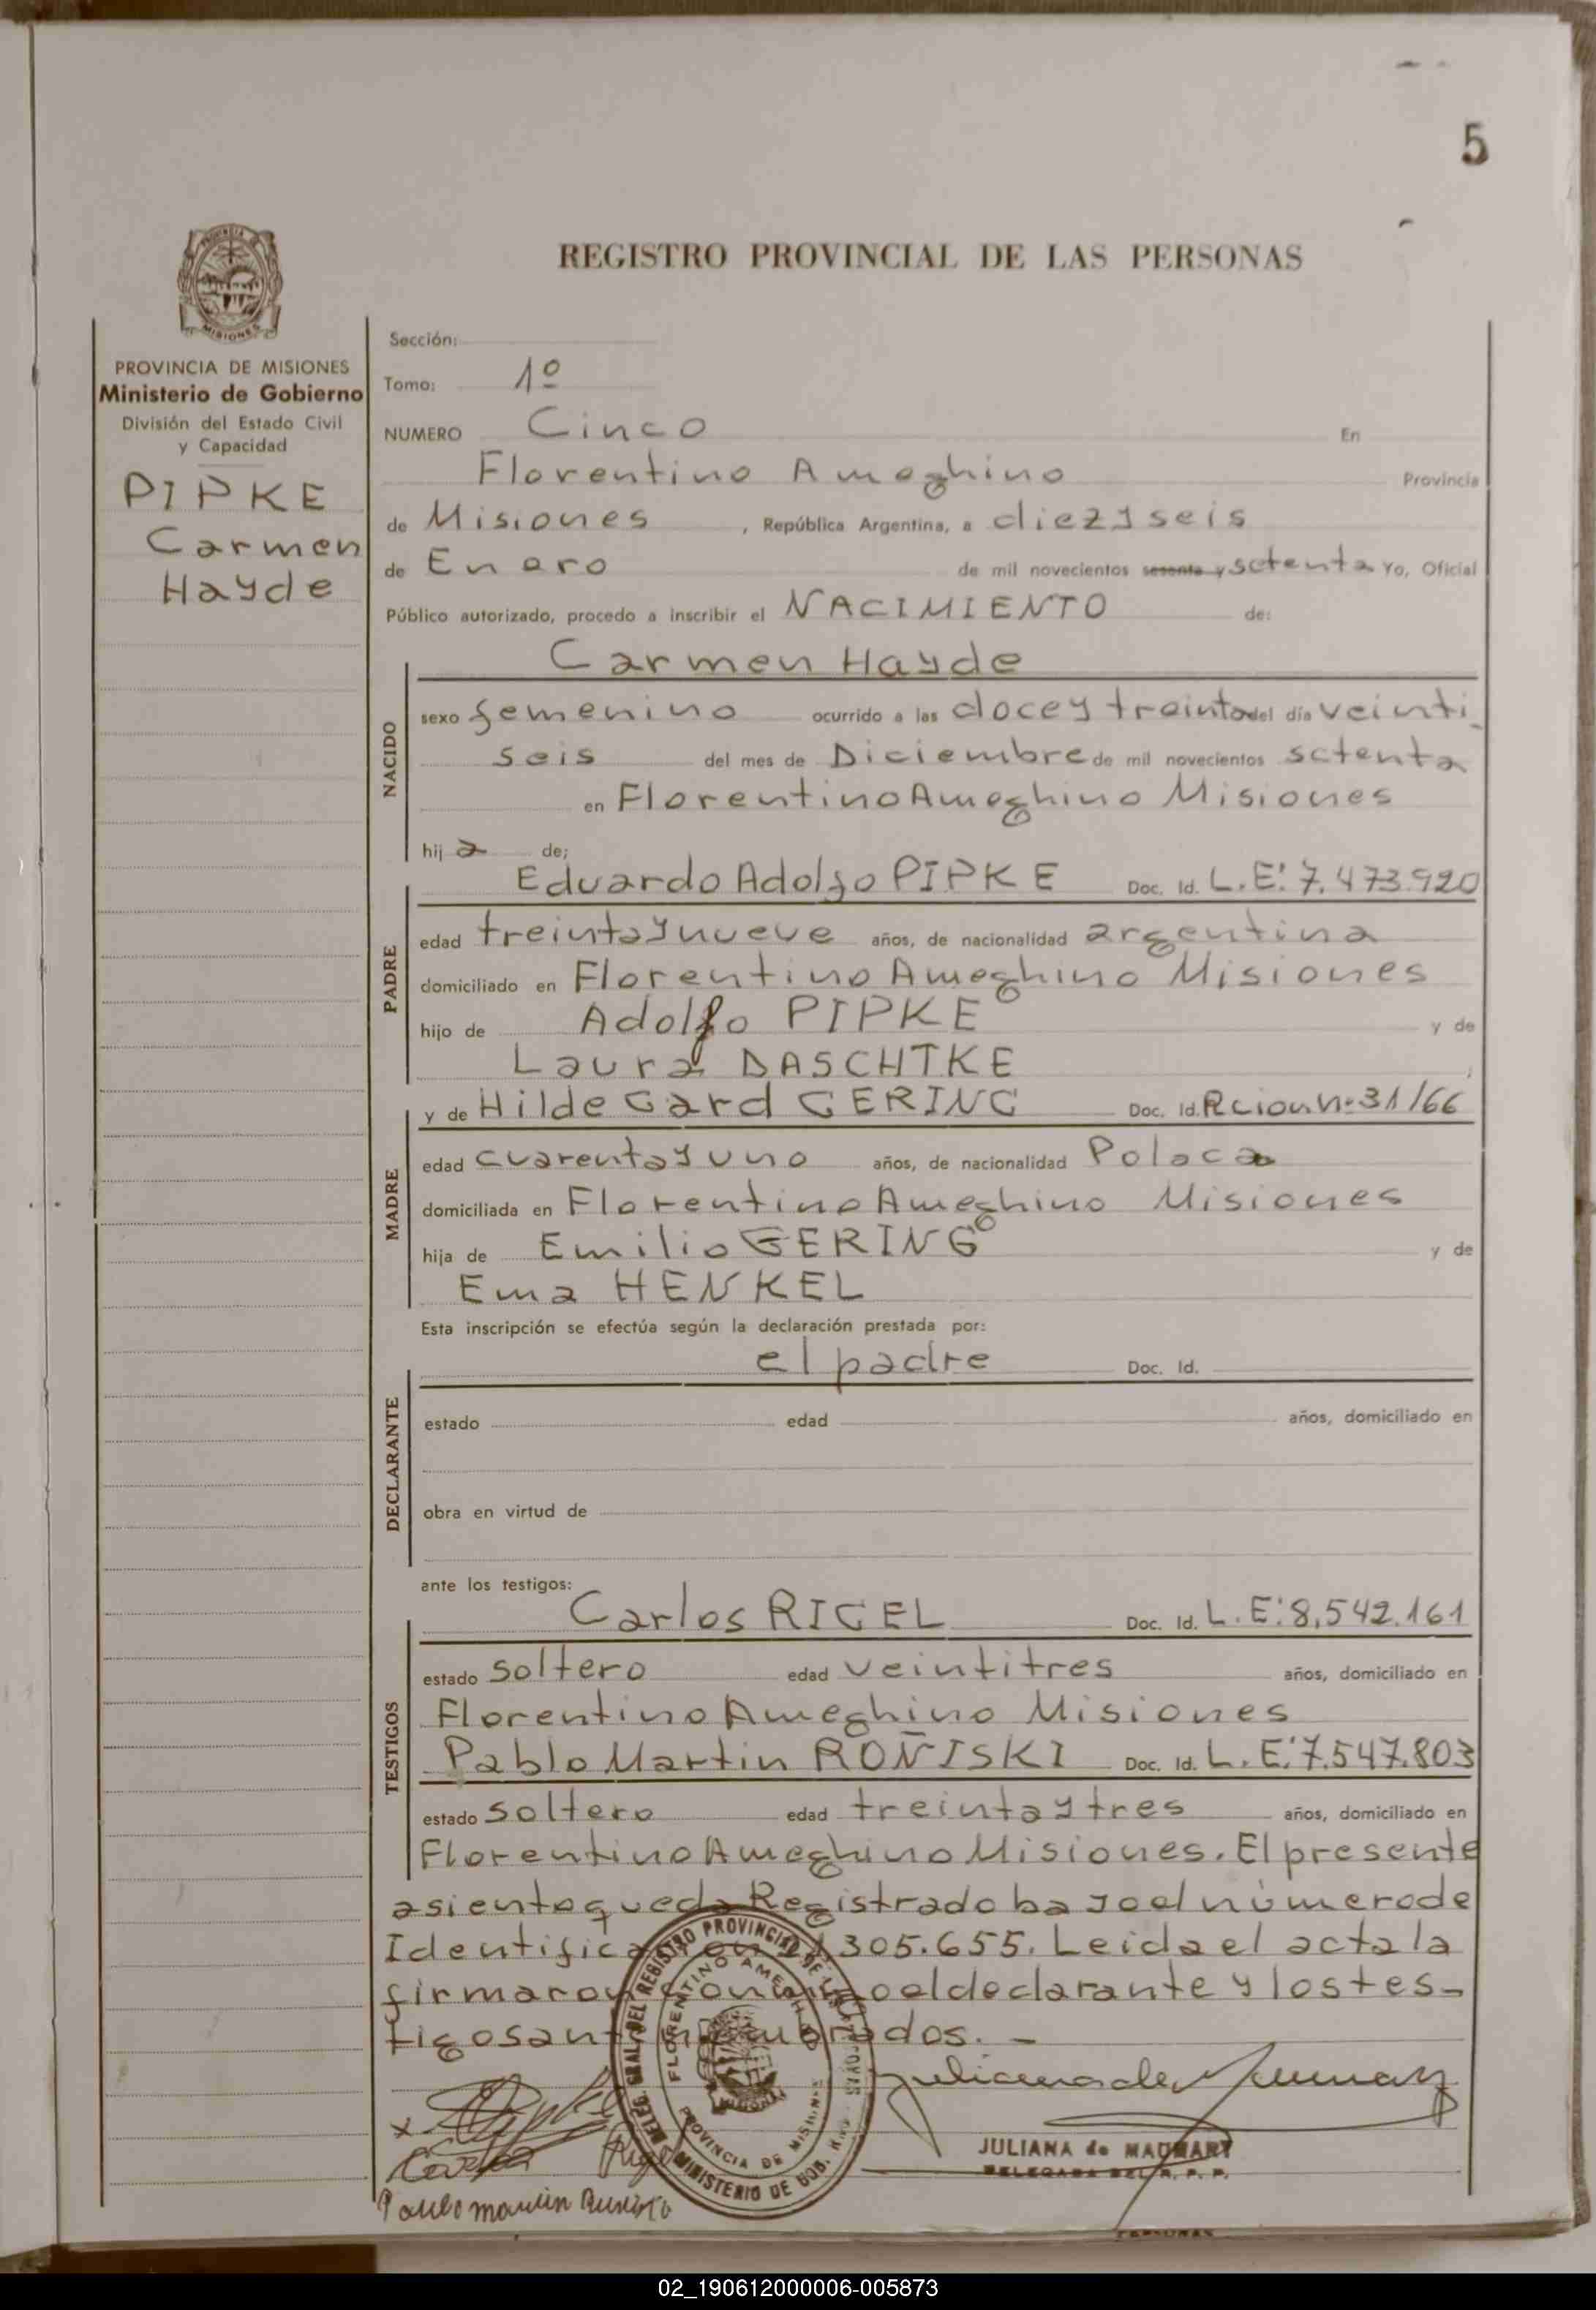 5
REGISTRO PROVINCIAL DE LAS PERSONAS
PROVINCIA DE MISIONES
Ministerio de Gobierno
División del Estado Civil
y Capacidad
PIPKE
Carmen
Hayde
Sección:
Tomo: 1º
NUMERO Cinco En
Florentino Ameghino Provincia
de Misiones , República Argentina, a diez y seis
de Enero de mil novecientos sesenta y setenta Yo, Oficial
Público autorizado, procedo a inscribir el NACIMIENTO de:
Carmen Hayde
NACIDO
sexo femenino ocurrido a las doce y treinta del día veinti
seis del mes de Diciembre de mil novecientos setenta
en Florentino Ameghino Misiones
hij a de;
PADRE
Eduardo Adolfo PIPKE Doc. Id. L.E: 7.473.920
edad treinta y nueve años, de nacionalidad argentina
domiciliado en Florentino Ameghino Misiones
hijo de Adolfo PIPKE y de
Laura DASCHTKE
MADRE
y de Hilde Gard GERING Doc. Id. Rcion Nº 31/66
edad cuarenta y uno años, de nacionalidad Polaca
domiciliada en Florentino Ameghino Misiones
hija de Emilio GERING y de
Ema HENKEL
Esta inscripción se efectúa según la declaración prestada por:
DECLARANTE
el padre Doc. Id.
estado edad años, domiciliado en
obra en virtud de
ante los testigos:
TESTIGOS
Carlos RIGEL Doc. Id. L.E: 8,542.161
estado soltero edad veintitres años, domiciliado en
Florentino Ameghino Misiones
Pablo Martin ROÑISKI Doc. Id. L.E: 7.547.803
estado soltero edad treinta y tres años, domiciliado en
Florentino Ameghino Misiones. El presente
asiento queda Registrado bajo el número de
305.655. Leida el acta la
firmaron el declarante y los tes-
tigos
JULIANA de
DELEGADA DEL R. P. P.
FLORENTINO AMEGHINO
PROVINCIA DE MISIONES
02_190612000006-005873